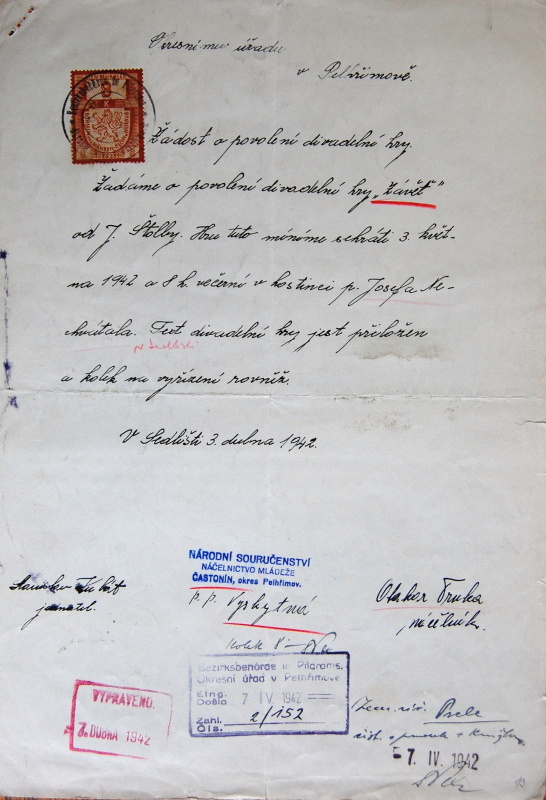 Okresnímu úřadu
v Pelhřimově.
8
K
Žádost o povolení divadelní hry.
Žádáme o povolení divadelní hry „Závěť"
od J. Štolby. Hru tuto míníme sehráti 3. květ-
na 1942 o 8 h. večerní v hostinci p. Josefa Ne-
chvátala. Text divadelní hry jest přiložen
v Sedlišti
a kolek na vyřízení rovněž.
V Sedlišti 3. dubna 1942.
NÁRODNÍ SOURUČENSTVÍ
NÁČELNICTVO MLÁDEŽE
ČASTONÍN, okres Pelhřimov.
p. p. Vyskytná
Stanislav
jednatel.
Otakar Trnka
náčelník.
Kolek 8
Bezirksbehörde in Pilgrams.
Okresní úřad v Pelhřimově
Eing.
Došlo 7 IV. 1942
Zahl.
Čís. 2/152
VYPRAVENO.
7. DUBNA 1942
7. IV. 1942